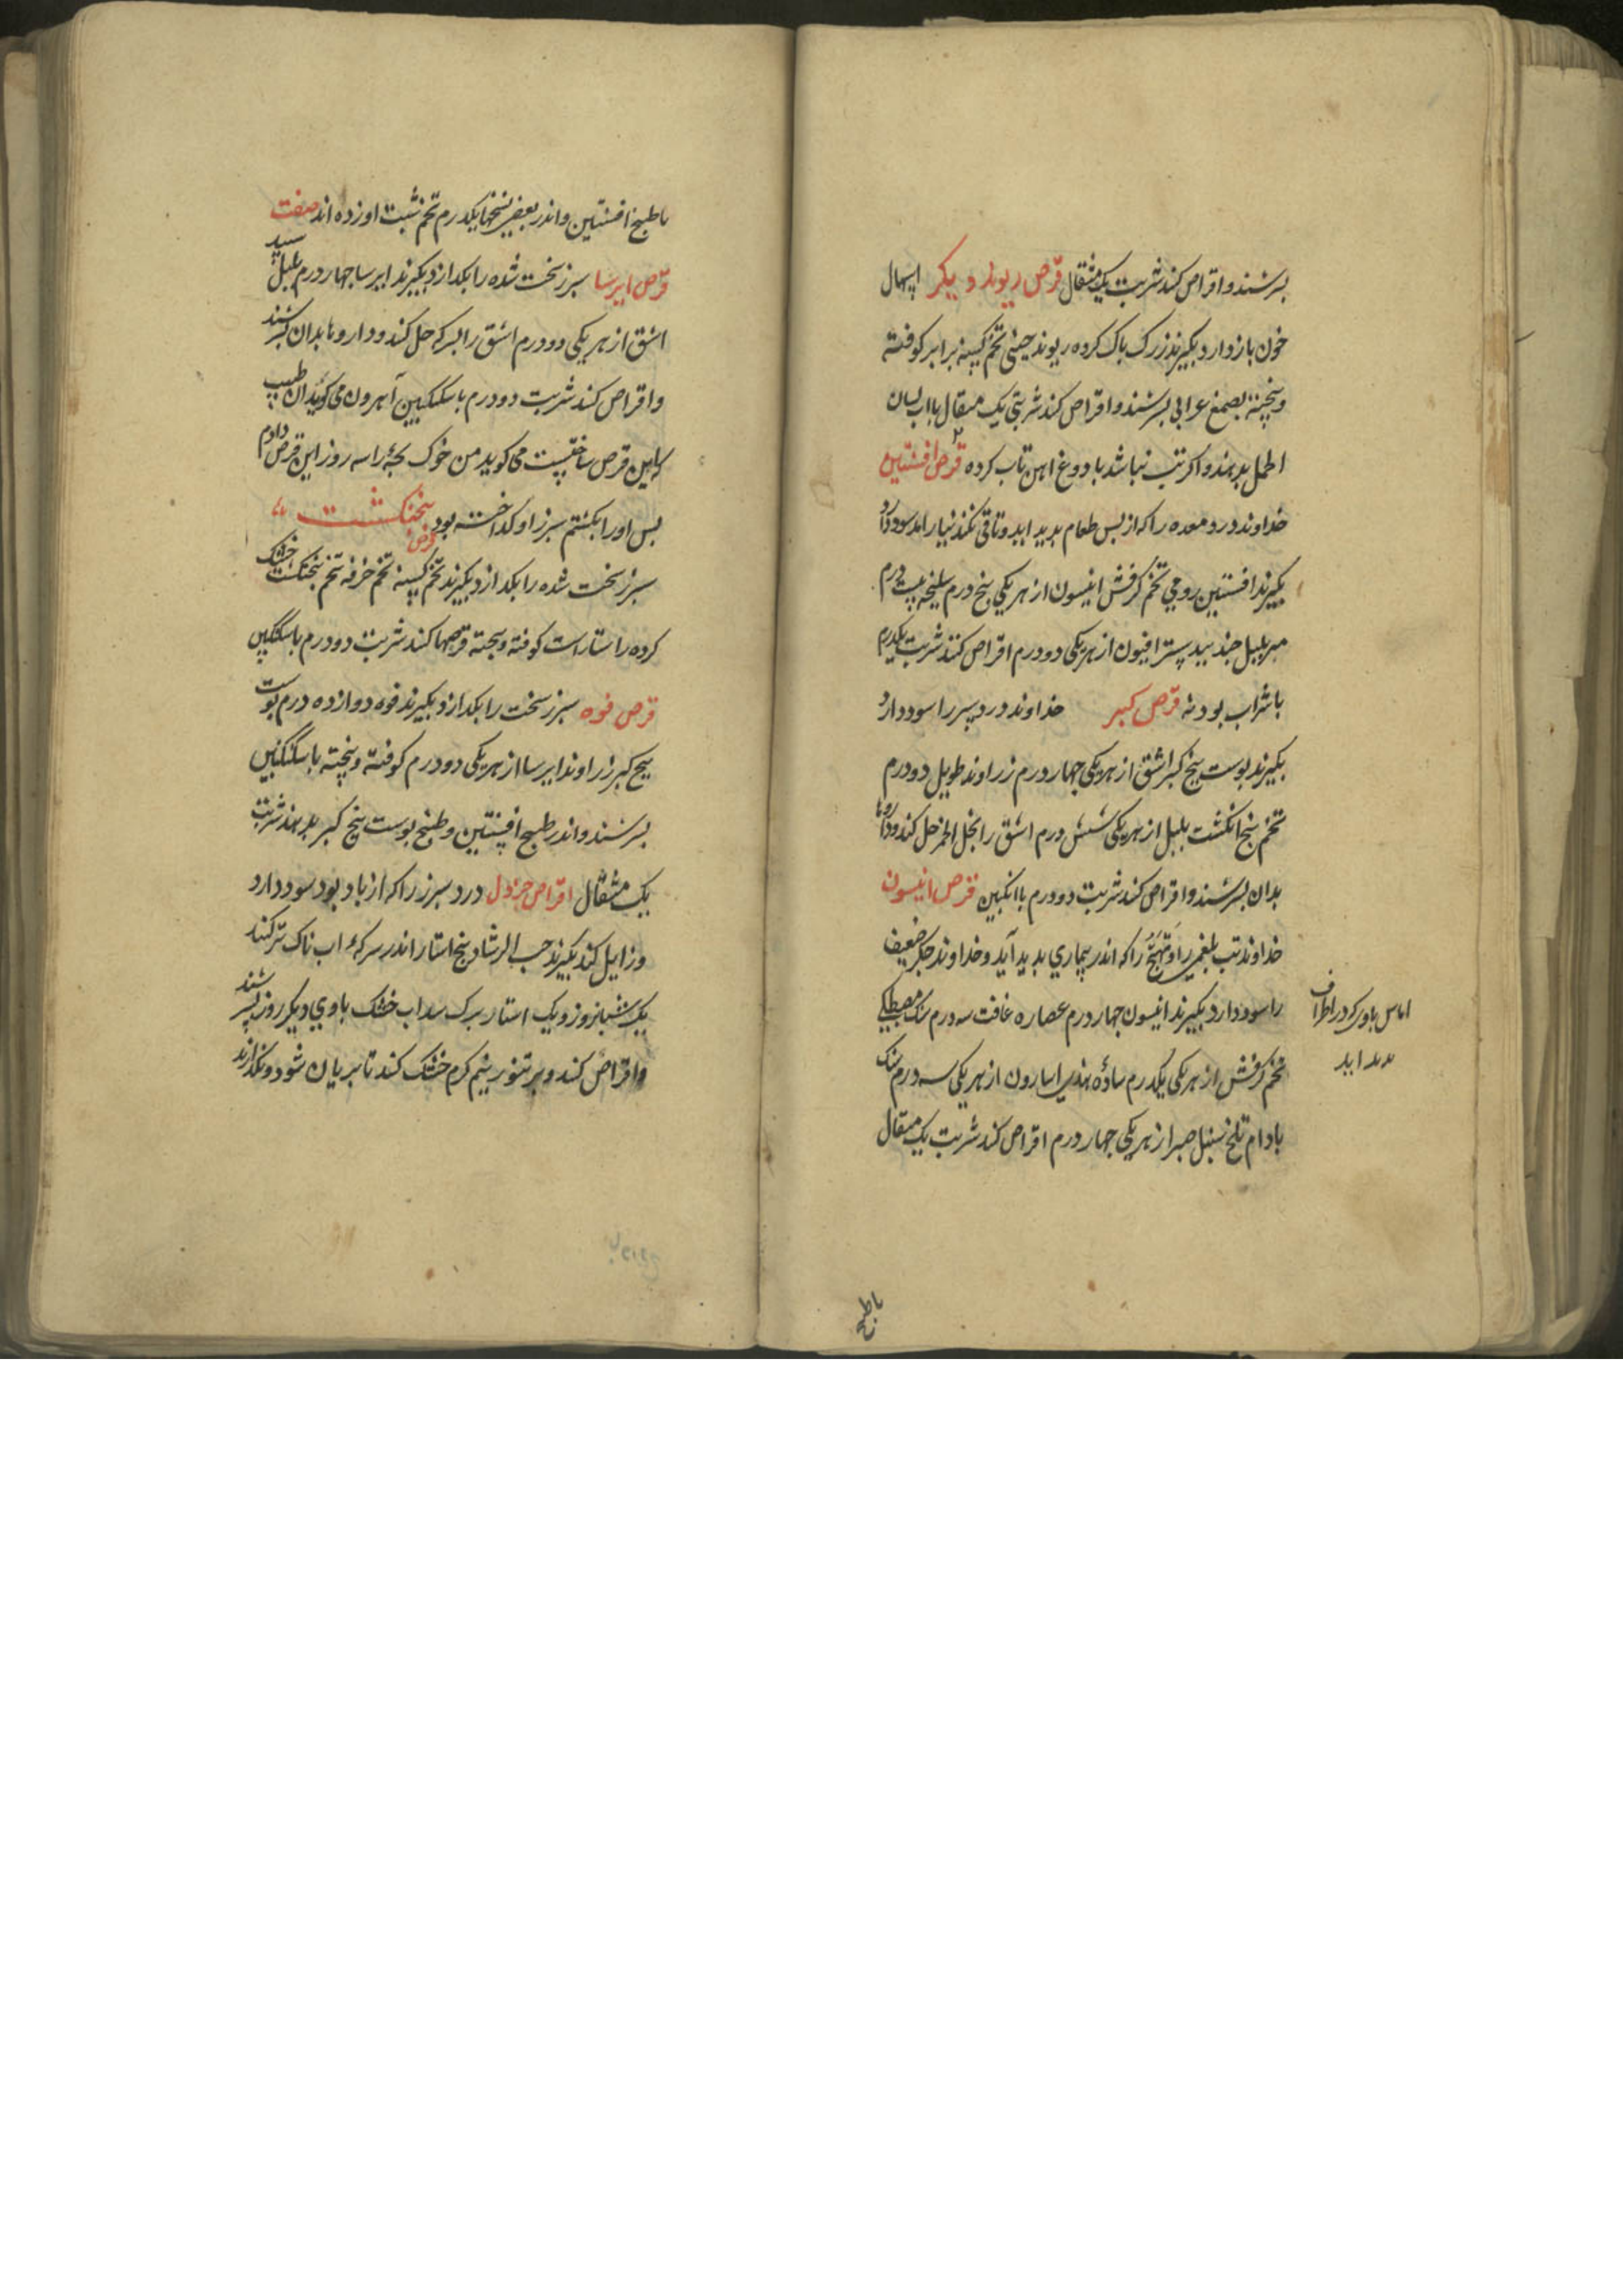 بسرشند و اقراص کنند شربت یک مثقال قرص ریوند دیکر اسهال
خون بازدارد بکیرند زرک پاک کرده ریوند چینی تخم کسنه برابر کوفته
و بیخته بصمغ عرابی بسرشند و اقراص کنند شربتی یک مثقال بااب لسان
الحمل بدهند و اکر تب نباشد با دوغ اهن تاب کرده قرص افسنتین
خداوند درد معده را که از بس طعام بدید اید و تاقی نکند نیارامد سود دارد
بکیرند افسنتین رومی تخم کرفش انیسون از هر یکی پنج درم سلیخه بیست درم
مر بلبل جند بیدستر افیون از هر یکی دو درم اقراص کنند شربت یکدرم
با شراب بودنه قرص کبر خداوند درد سپرز را سود دارد
بکیرند بوست بیخ کبر اشق از هر یکی جهار درم زراوند طویل دو درم
تخم پنج انکشت بلبل از هر یکی شش درم اشق را بخل الخمر حل کنند و داروها
بدان بسرشند و اقراص کنند شربت دو درم با انکبین قرص انیسون
خداوند تب بلغمی را و تهبج را که اندر بیماری بدید آید و خداوند جکر ضعیف
را سود دارد بکیرند انیسون جهار درم عصاره غافت سه درم سنک مصطکی
تخم کرفش از هر یکی یکدرم ساذه هندی اسارون از هر یکی سه درم سنک
بادام تلخ سنبل صبر از هر یکی جهار درم اقراص کنند شربت یک مثقال
اماس بادی که در اطراف
بدید اید
باطبیخ
باطبیخ افسنتین و اندر بعضی نسخها یکدرم تخم شبت اورده اند صفت
قرص ایرسا سبرز سخت شده را بکدازد بکیرند ایرسا جهار درم بلبل سپید
اشق از هر یکی دو درم اشق را بسرکه حل کنند و داروها بدان بسرشند
و اقراص کنند شربت دو درم باسکنکبین آهرون می کوید ان طبیب
که این قرص ساختست می کوید من خوک بجه را سه روز این قرص دادم
بس او را بکشتم سبرز او کداخته بود قرص پنجنکشت
سبرز سخت شده را بکدازد بکیرند تخم کسنه تخم خرفه تخم پنجنکشت خشک
کرده راستاراست کوفته و بیخته قرصها کنند شربت دو درم باسکنکبین
قرص فوه سبرز سخت را بکدازد بکیرند فوه دوازده درم بوست
بیخ کبر زراوند ایرسا از هر یکی دو درم کوفته و بیخته باسکنکبین
بسرشند و اندر طبیخ افسنتین و طبیخ بوست بیخ کبر بدهند شربت
یک مثقال اقراص خردل درد سبرز را که از باد بود سود دارد
و زایل کند بکیرند حب الرشاد پنج استار اندر سرکه اب ناک تر کنند
یک شبانروز و یک استار برک سداب خشک باوی دیکر روز بسرشند
و اقراص کنند و بر تنور نیم کرم خشک کنند تا بریان شود و نکذارند